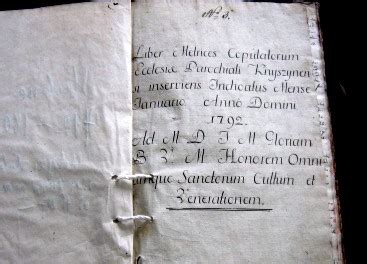 No 5.
Liber Metrices Copulatorum
Ecclesiæ Parochiali Knyszynen
si inserviens Inchoatus Mense
Januario Anno Domini
1792.
Ad M D T M Gloriam
B V M Honorem Omni
umque Sanctorum Cultum et
Venerationem.